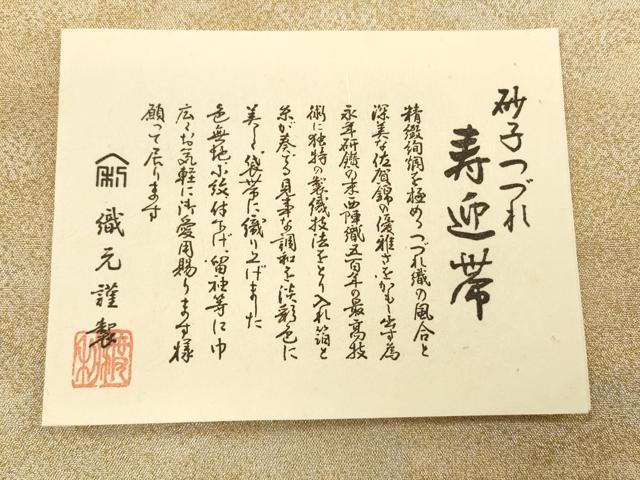 砂子つづれ
寿迎帯
精緻絢爛を極めつづれ織の風合と
深美な佐賀錦の優雅さをかもし出す為
永年研鑽の末西陣織五百年の最高技
術に独特の製織技法をとり入れ箔と
糸が奏でる見事な調和を淡彩色に
美しく袋帯に織り上げました
色無地小紋付下げ留袖等に巾
広くお気軽に御愛用賜ります様
願って居ります
織元謹製